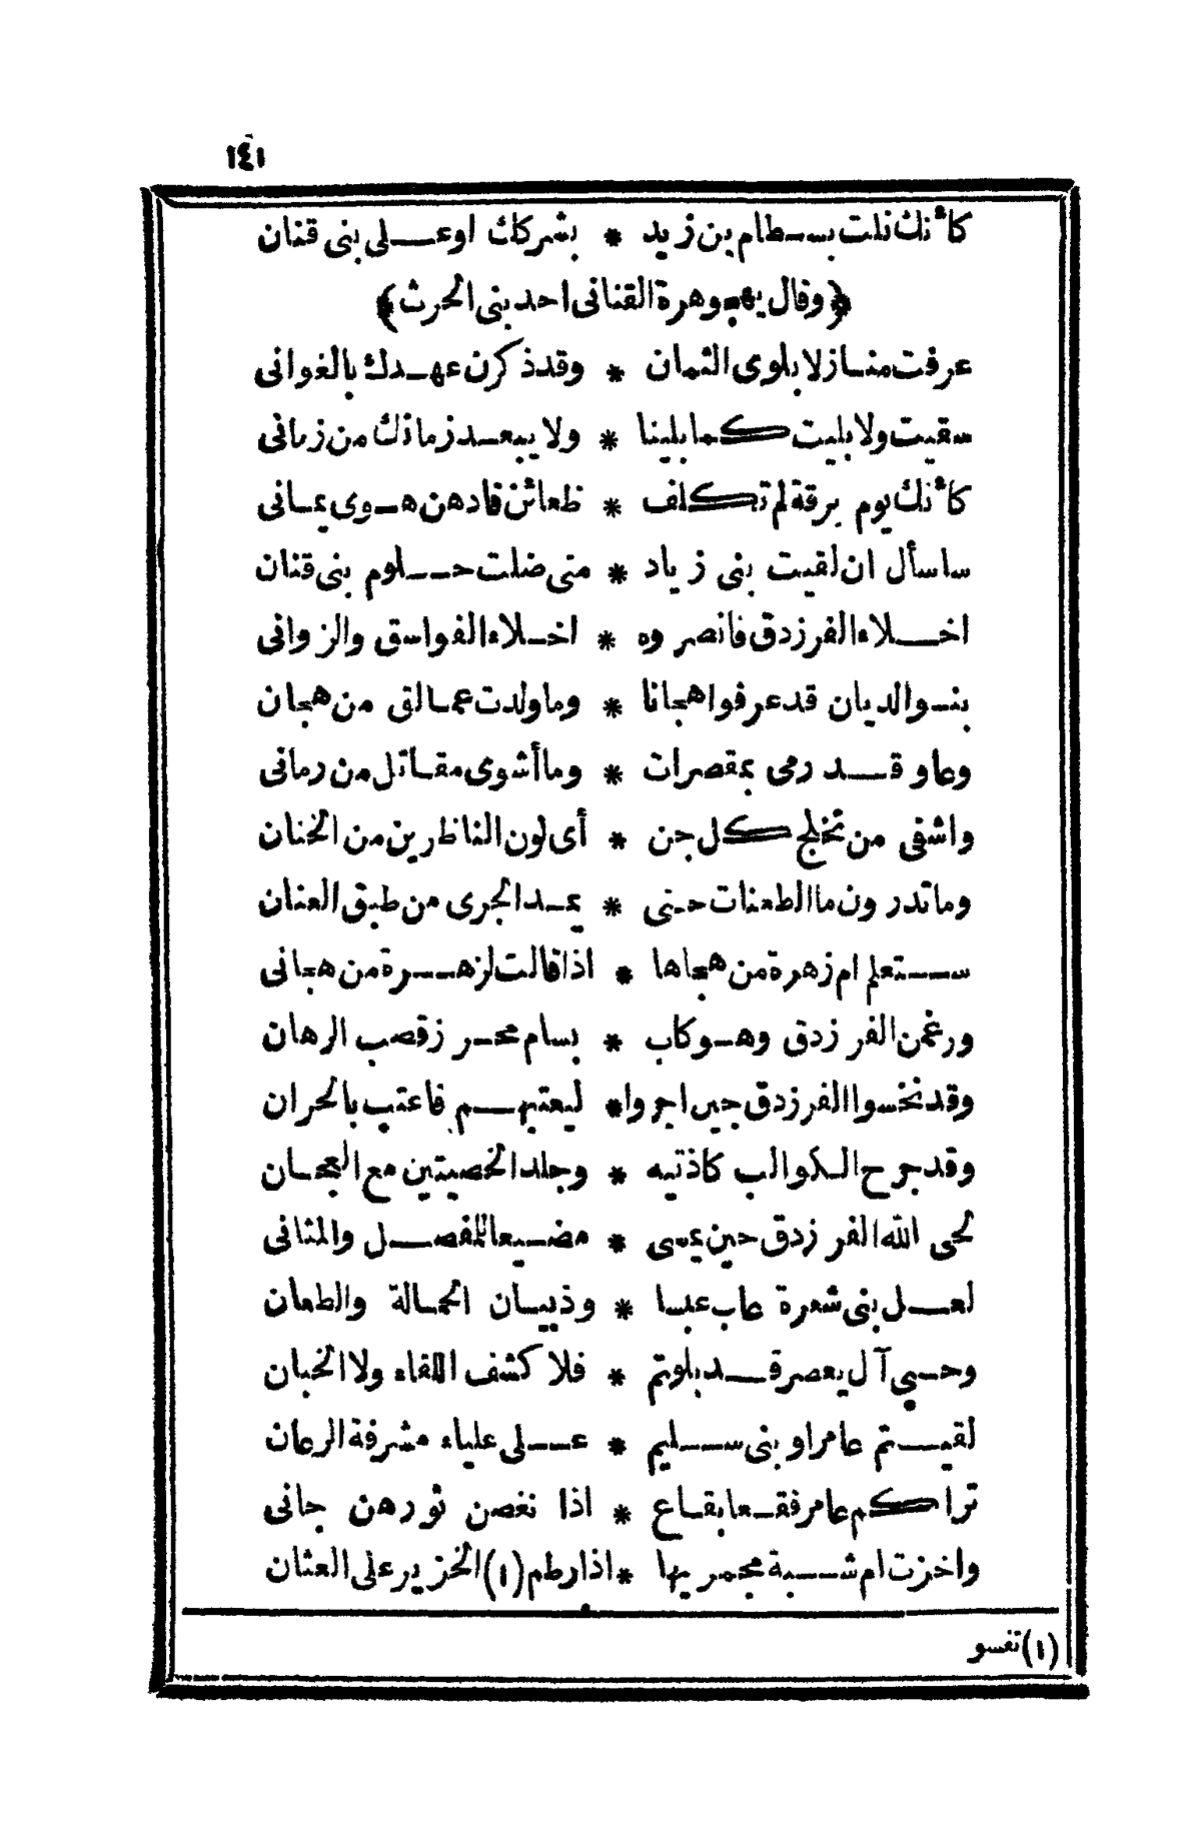 ١٤١
كأنك نلت بسطام بن زيد * بشركك اوعلى بنى قنان
﴿وقال يهجو وهرة القنانى احد بنى الحرث﴾
عرفت منازلا بلوى الثمان * وقد ذكرن عهدك بالغوانى
سقيت ولا بليت كما بلينا * ولا يبعد زمانك من زمانى
كأنك يوم برقة لم تكلف * ظعائن قادهن هوى يمانى
ساسأل ان لقيت بنى زياد * متى ضلت حلوم بنى قنان
اخلاء الفرزدق فانصروه * اخلاء الفواسق والزوانى
بنو الديان قد عرفوا هجانا * وما ولدت عمالتى من هجان
وعاو قد رمى بمقصرات * وما أشوى مقاتل من رمانى
واشفى من تخلج كل جن * أى لون الناظرين من الخنان
وما تدرون ما الطعنات حتى * يمد الجرى من طبق العنان
ستعلم ام زهرة من هجاها * اذا قالت لزهرة من هجانى
ورغمن الفرزدق وهو كاب * بسام محرز قصب الرهان
وقد نخسوا الفرزدق حين اجروا * ليعتبهم فاعتب بالحران
وقد جرح الكوالب كاذتيه * وجلد الخصيتين مع العجان
لحى الله الفرزدق حين يمسى * مضيعا للمفصل والمثانى
لعل بنى شعرة عاب عبسا * وذبيان الحمالة والطعان
وحى آل يعصر قد بلوتم * فلا كشف اللقاء ولا الخبان
لقيتم عامرا وبنى سليم * على علياء مشرفة الرعان
تراككم عامر فقعا بقاع * اذا نغصن ثورهن جانى
واخزت ام شبة مجمريها * اذا رطم (١) الخزير على العثان
(١) تفسو